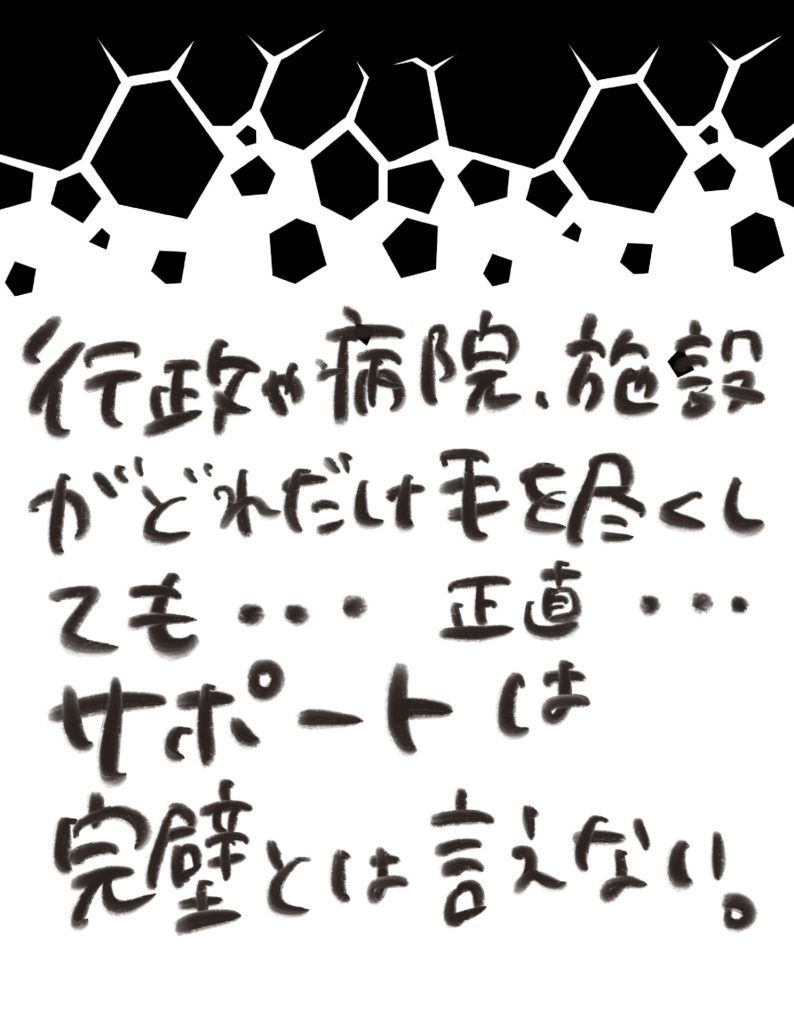 行政や病院、施設
がどれだけ手を尽くし
ても・・・ 正直・・・
サポートは
完璧とは言えない。